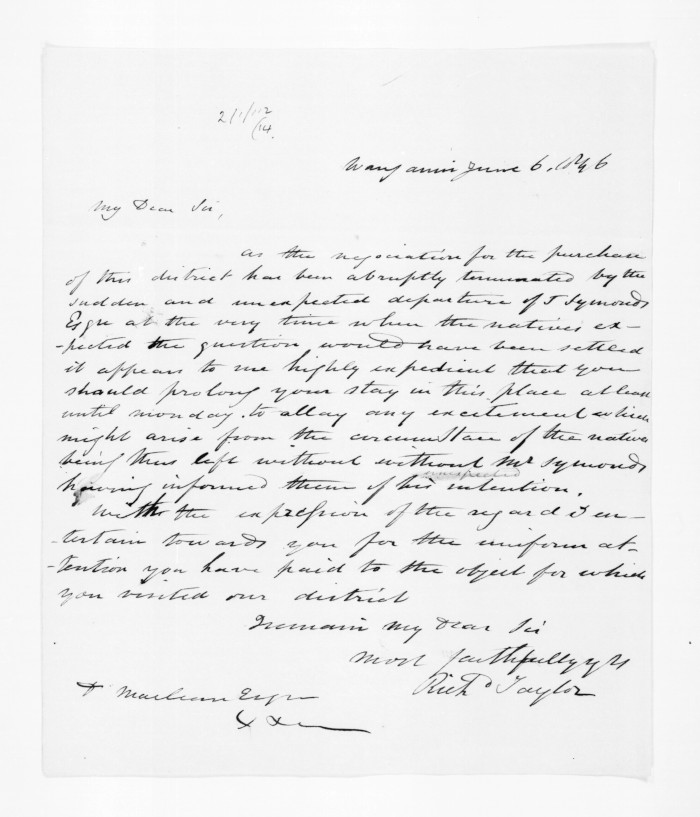 2/1/12
/14.
Wanganui June 6. 1846
My Dear Sir,
as the negociation for the purchase
of this district has been abruptly terminated by the
sudden and unexpected departure of J Symonds
Esqre at the very time when the natives ex-
-pected the question would have been settled
it appears to me highly expedient that you
should prolong your stay in this place at least
until monday. to allay any excitement which
might arise from the circumstace of the natives
being thus left without without Mr Symonds
having informed them of his intention.
With the expression of the regard I en-
-tertain towards you for the uniform at-
-tention you have paid to the object for which
you visited our district
I remain my Dear Sir
most faithfully yrs
Richd Taylor
Esqre